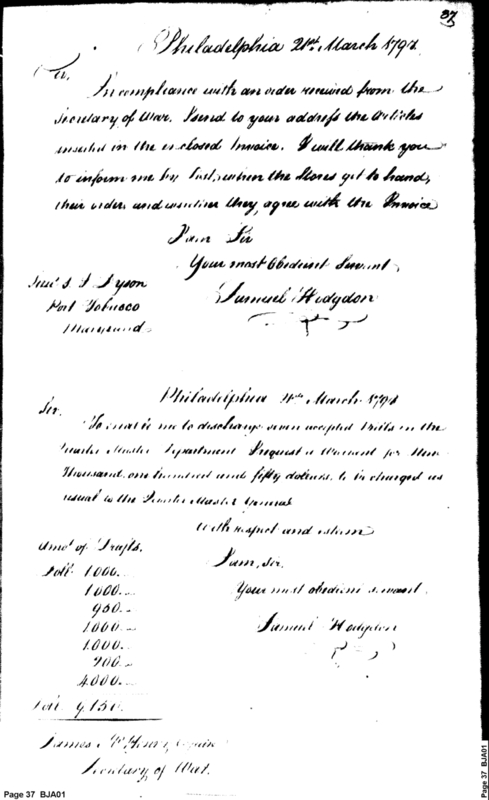 37
Philadelphia 21st March 1797
Sir.
In compliance with an order received from the
Secretary of War. I send to your address the Articles
inserted in the enclosed Invoice. I will thank you
to inform me by Post, when the Stores get to hand,
their order and whether they, agree with the Invoice
I am Sir
Your most Obedient Servant
Samuel Hodgdon
Port Tobacco
Maryland
Philadelphia March 1797
Sir.
To enable me to discharge seven accepted Drafts in the
Quarter Master Department I request a Warrant for Nine
Thousand, one hundred and fifty dollars, to be charged as
usual to the Quarter Master General
With respect and esteem
Amot of Drafts.
I am, Sir.
Doll. 1000
Your most obedient servant
1000
950
Samuel Hodgdon
1000
1000
200
4000
Doll 9,150
James McHenry, Esquire
Secretary of War.
Page 37 BJA01
Page 37 BJA01